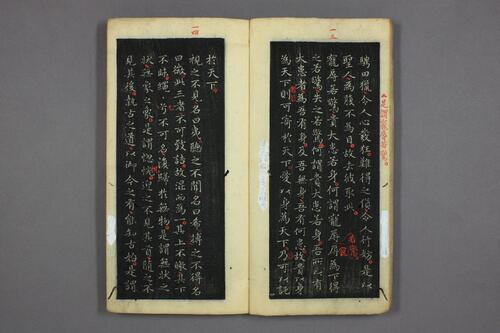 一三
騁田獵令人心發狂難得之貨令人行妨是以
聖人為腹不為目故去彼取此
寵辱若驚貴大患若身何謂寵辱辱為下得
之若驚失之若驚何謂貴大患若身吾所以有
大患者為吾有身吾無身吾有何患故貴以身
為天下則可寄於天下愛以身為天下乃可以託
是謂寵辱若驚
一四
於天下
視之不見名曰夷聽之不聞名曰希搏之不得名
曰微此三者不可致詰故混而為一其上不皦其下
不昧繩〻兮不可名復歸於無物是謂無狀之
狀無象之象是謂惚恍迎之不見其首隨之不
見其後執古之道以御今之有能知古始是謂